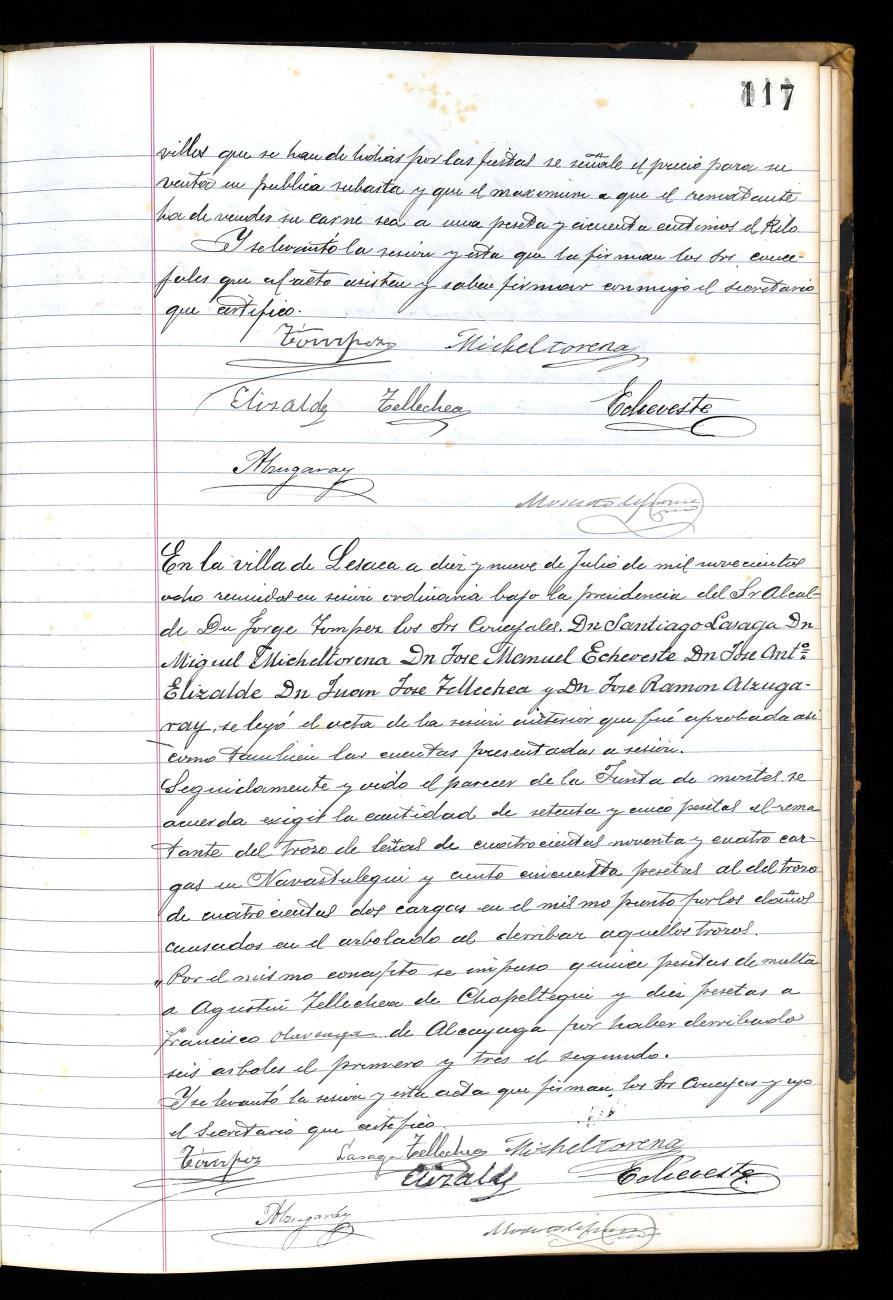 117
villos que se han de lidiar por las fiestas se señale el precio para su
venta en publica subasta y que el maximum a que el rematante
ha de vender su carne sea a una peseta y cincuenta centimos el Kilo.
Y se levantó la sesion y esta que la firman los Srs conce-
jales que al acto asisten y saben firmar conmigo el secretario
que certifico.
Tompez Micheltorena
Elizalde Tellechea Echeveste
Alzugaray
En la villa de Lesaca a diez y nueve de Julio de mil novecientos
ocho reunidos en sesion ordinaria bajo la presidencia del Sr Alcal-
de Dn Jorge Tompez los Srs Concejales. Dn Santiago Lasaga Dn
Miguel Micheltorena Dn Jose Manuel Echeveste Dn Jose Antº
Elizalde Dn Juan Jose Tellechea y Dn Jose Ramon Alzuga-
ray, se leyó el acta de la sesion anterior que fué aprobada asi
como tambien las cuentas presentadas a sesion.
Seguidamente y oido el parecer de la Junta de montes se
acuerda exigir la cantidad de setenta y cinco pesetas al rema
tante del trozo de leñas de cuatrocientas noventa y cuatro car-
gas en Navastulegui y ciento cincuenta pesetas al del trozo
de cuatrocientas dos cargas en el mismo punto por los daños
causados en el arbolado al derribar aquellos trozos.
"Por el mismo concepto se impuso quince pesetas de multa
a Agustin Tellechea de Chapeltegui y diez pesetas a
Francisco de Alcayaga por haber derribado
seis arboles el primero y tres el segundo.
Y se levantó la sesion y esta acta que firman los Srs Concejes y yo
el Secretario que certifico.
Tompez Lasaga Tellechea Micheltorena
Elizalde Echeveste
Alzugaray